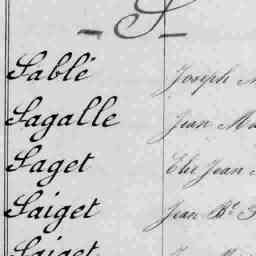 - S -
Sablé Joseph
Sagalle Jean
Saget Elie Jean
Saiget Jean Bte
Saiget